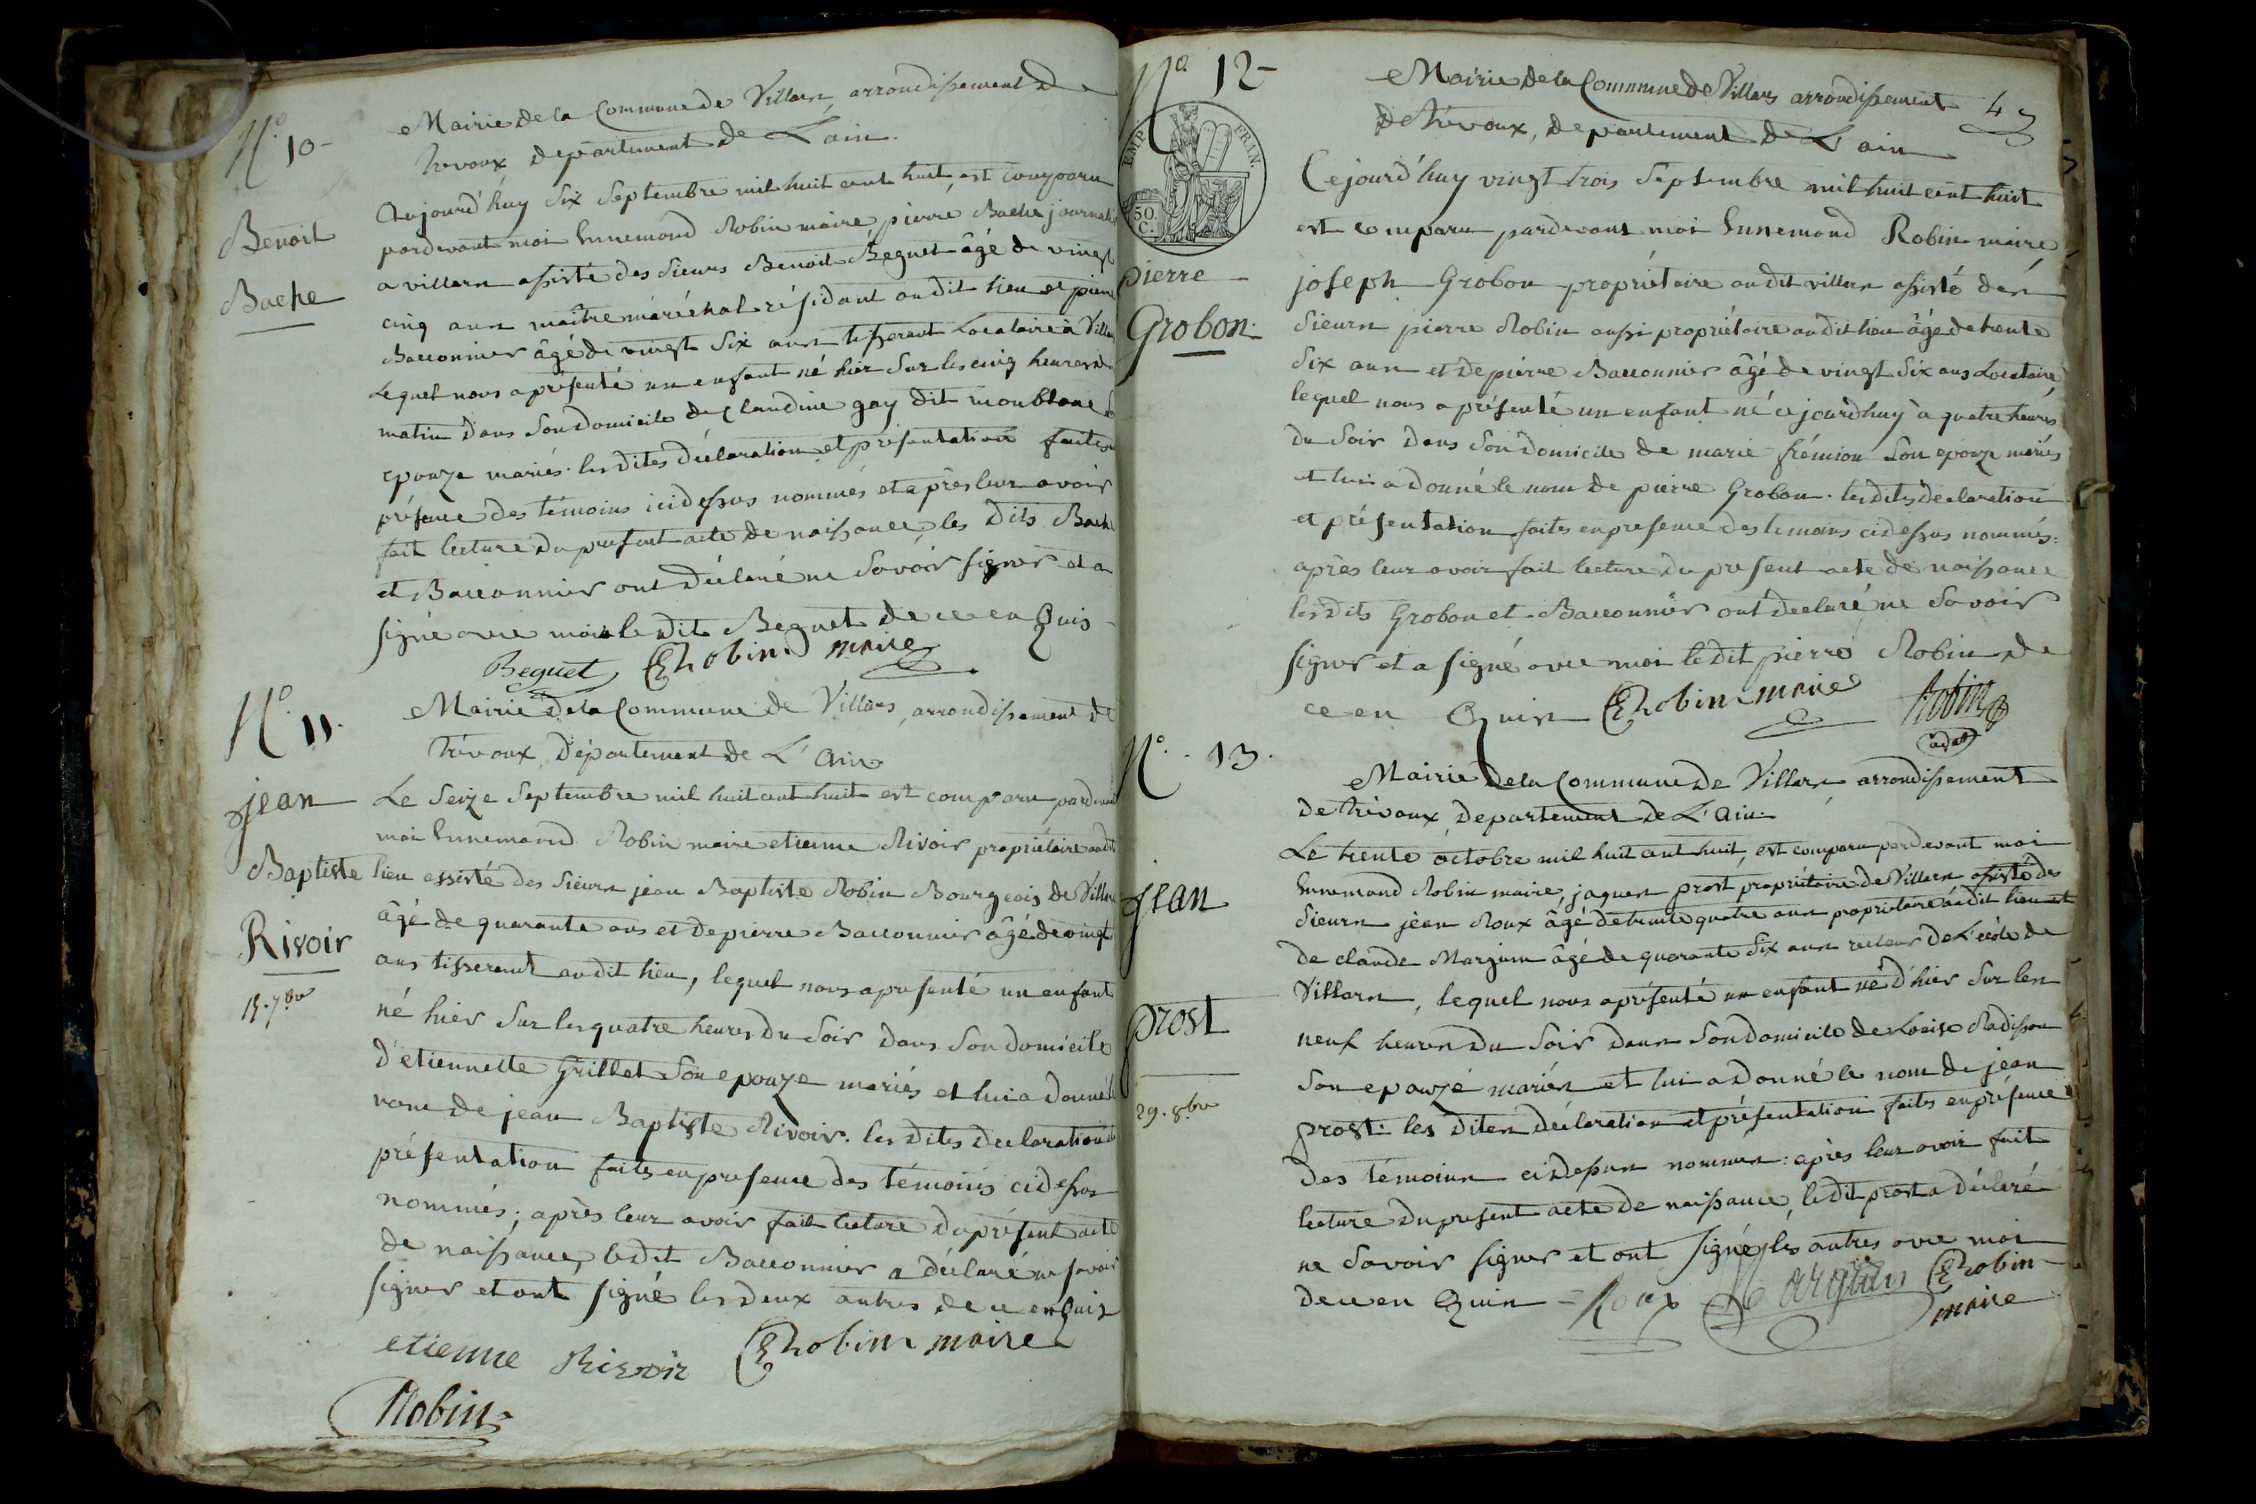 N.° 10-
Benoit
Bache
Mairie de la Commune de Villars, arrondissement de
Trevoux département de L'ain.
Aujourd'huy Six Septembre mil huit cent huit, est comparu
pardevant moi Ennemond Robin maire, pierre Bache journali
a villars assisté des Sieurs Benoit Beguet âgé de vingt
cinq ans maître maréchal résidant audit lieu et pierre
Bacconnier âgé de vingt Six ans tisserant Locataire à Villa
Lequel nous a présenté un enfant né hier Sur les cinq heures du
matin dans Son Domicile de Claudine gay dit monblanc
epouze mariés. les dites déclaration et présentation faites
présence des témoins ici dessus nommés et après leur avoir
fait lecture du présent acte de naissance, les dits Bache
et Bacconnier ont déclaré ne Savoir signer et a
signé avec moi le dit Beguet de ce en Quis
Beguet ERobin maire
N.° 11.
jean
Baptiste
Rivoir
15. 7bre
Mairie de la Commune de Villars, arrondissement de
Trévoux, Département de L'Ain
Le Seize Septembre mil huit cent huit est comparu pardevant
moi Ennemond Robin maire etienne Rivoir propriétaire audit
lieu assisté des Sieurs jean Baptiste Robin Bourgeois de Villars
âgé de quarante ans et de pierre Bacconnier âgé de vingt
ans tisserant audit lieu, lequel nous a présenté un enfant
né hier Sur les quatre heures du Soir dans Son domicile
d'etiennette Grillet Son epouze mariés et lui a donné le
nom de jean Baptiste Rivoir. les dites declaration et
présentation faites en presence des témoins ci dessus
nommés; après leur avoir fait lecture du présent acte
de naissance, le dit Bacconnier a déclaré ne savoir
signer et ont signé les deux autres de ce en Quis
etienne Rivoir ERobin maire
Robin
N.° 12-
43
EMP. FRAN.
50 C.
pierre
Grobon.
Mairie de la Commune de Villars arrondissement
de Trévoux, departement de L'ain
Cejourd'huy vingt trois Septembre mil huit cent huit
est comparu pardevant moi Ennemond Robin maire
joseph Grobon propriétaire audit villars assisté des
Sieurs pierre Robin aussi propriétaire audit lieu âgé de trente
Six ans et de pierre Bacconnier âgé de vingt Six ans Locataire
lequel nous a présenté un enfant né cejourdhuy à quatre heures
du Soir dans Son domicile de marie frémion Son epouze mariés
et lui a donné le nom de pierre Grobon. les dites declaration
et présentation faites en presence des temoins ci dessus nommés:
après leur avoir fait lecture du present acte de naissance
les dits Grobon et Bacconnier ont declaré ne Savoir
signer et a signé avec moi le dit pierre Robin de
ce en Quis ERobin maire Robin
N.° 13.
jean
prost
29. 8bre
Mairie de la Commune de Villars arrondissement
de Trévoux, departement de L'Ain.
Le trente octobre mil huit cent huit, est comparu pardevant moi
Ennemond Robin maire, jaques prost propriétaire de Villars assisté des
Sieurs jean Roux âgé de trente quatre ans propriétaire audit lieu et
de claude Marjuin âgé de quarante Six ans recteur de L'école de
Villars, lequel nous a présenté un enfant né d'hier Sur les
neuf heures du Soir dans Son domicile de Louise Radisson
Son epouze mariés et lui a donné le nom de jean
prost. les dites déclaration et présentation faites en présence
des témoins ci dessus nommés: après leur avoir fait
lecture du present acte de naissance, le dit prost a déclaré
ne Savoir signer et ont signé les autres avec moi
de ce en Quis = Roux ERobin
maire